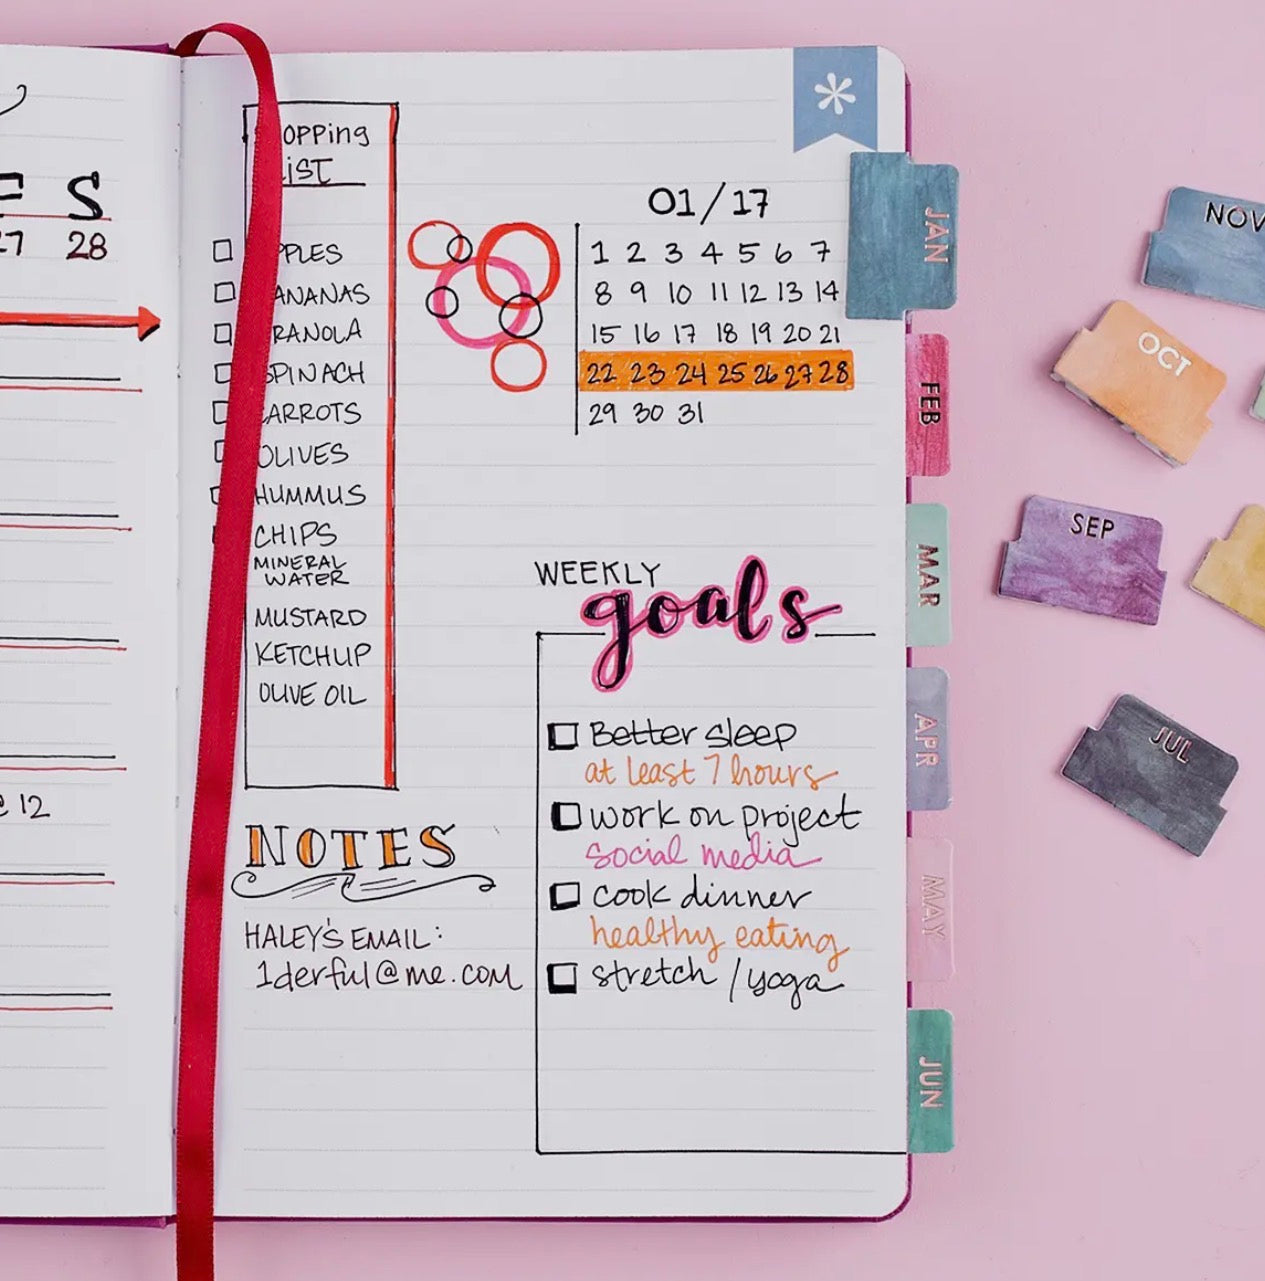 S
27 28
12
opping
iST
PPLES
ANANAS
RANOLA
SPINACH
CARROTS
OLIVES
HUMMUS
CHIPS
MINERAL
WATER
MUSTARD
KETCHUP
OLIVE OIL
NOTES
HALEY'S EMAIL:
1derful@me.com
01/17
1 2 3 4 5 6 7
8 9 10 11 12 13 14
15 16 17 18 19 20 21
22 23 24 25 26 27 28
29 30 31
WEEKLY
goals
Better sleep
at least 7 hours
work on project
social media
cook dinner
healthy eating
stretch / yoga
JAN
FEB
MAR
APR
MAY
JUN
NOV
OCT
SEP
JUL